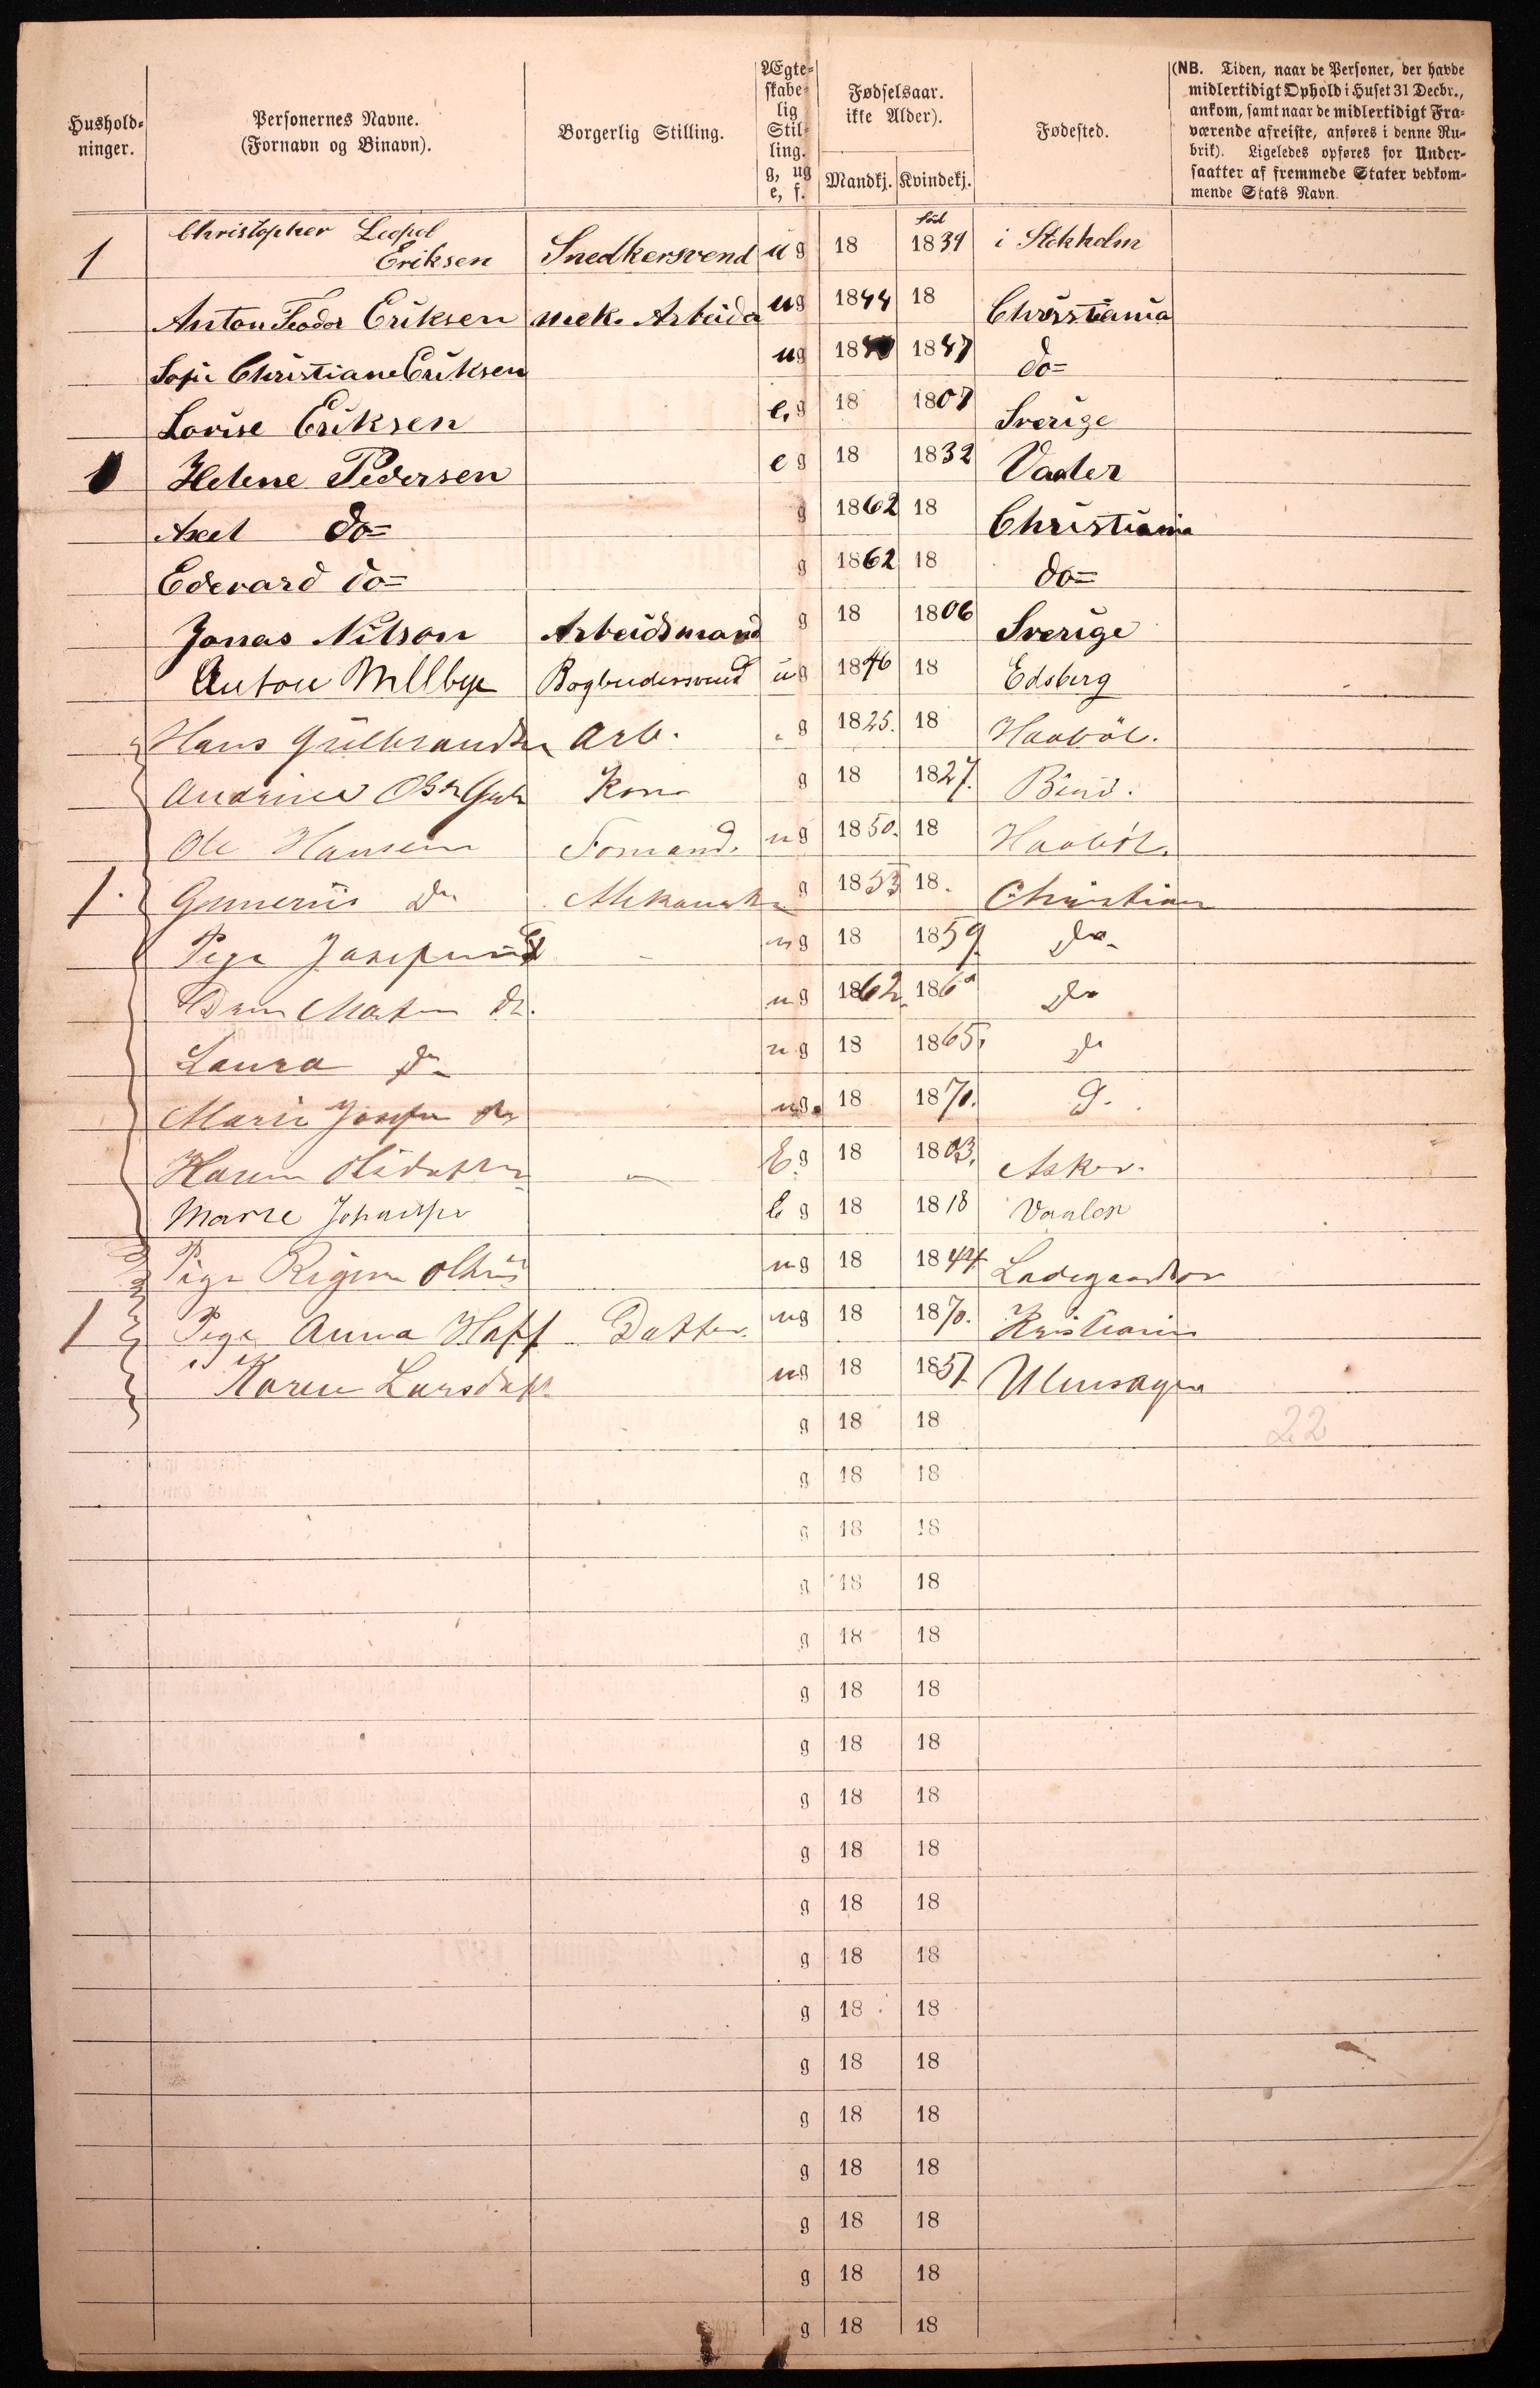 Hushold-
ninger.
Personernes Navne.
(Fornavn og Binavn).
Borgerlig Stilling.
Ægte-
skabe-
lig
Stil-
ling.
g, ug
e, f.
Fødselsaar.
ikke Alder).
Mandkj. Kvindekj.
Fødested.
(NB. Tiden, naar de Personer, der havde
midlertidigt Ophold i Huset 31 Decbr.,
ankom, samt naar de midlertidigt Fra-
værende afreiste, anføres i denne Ru-
brik). Ligeledes opføres for Under-
saatter af fremmede Stater vedkom-
mende Stats Navn.
Christopher Leopol
1 Eriksen Snedkersvend ug 18 fød 1839 i Stokholm
Anton Teodor Eriksen mek. Arbeider ug 1844 18 Christiania
Sofie Christiane Eriksen ug 18 1847 do=
Lovise Eriksen e, g 18 1807 Sverige
1 Helene Pedersen e g 18 1832 Vaaler
Axel do= g 1862 18 Christiania
Edevard do= g 1862 18 do=
Jonas Nilson Arbeidsmand g 18 1806 Sverige
Anton Mellbye Bogbindersvend ug 1846 18 Edsberg
Hans Gulbrandsen Arb. g 1825. 18 Haaböl.
Kone g 18 1827.
Ole Hansen Formand. ug 1850. 18 Haaböl.
1. Do g 1853 18. Christian
Pige ug 18 1859. Do
Do. ug 1862. 186 Do
Laura Do ug 18 1865. Do
Marie Josefin Do ug. 18 1870. D.
Karen Olsdatter E. g 18 1803. Asker.
Marie E g 18 1818 Vaaler
Pige Regine ug 18 1844
1 Pige Anna Hoff Datter. ug 18 1870. Kristiania
Karen Larsdatt. ug 18 1851. Ulensager
g 18 18
22
g 18 18
g 18 18
g 18 18
g 18 18
g 18 18
g 18 18
g 18 18
g 18 18
g 18 18
g 18 18
g 18 18
g 18 18
g 18 18
g 18 18
g 18 18
g 18 18
g 18 18